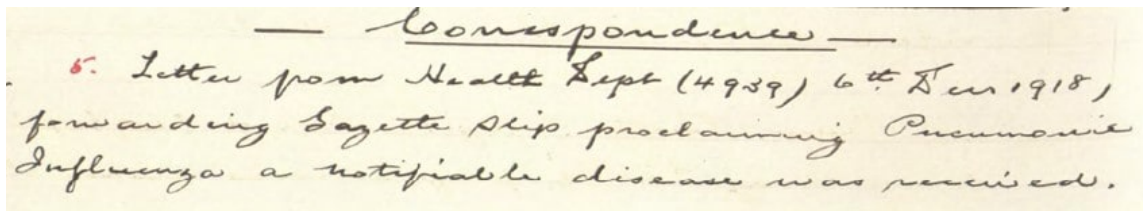 — Correspondence —
5. Letter from Health Dept (4939) 6th Decr 1918,
forwarding Gazette slip proclaiming Pneumonic
Influenza a notifiable disease was received.